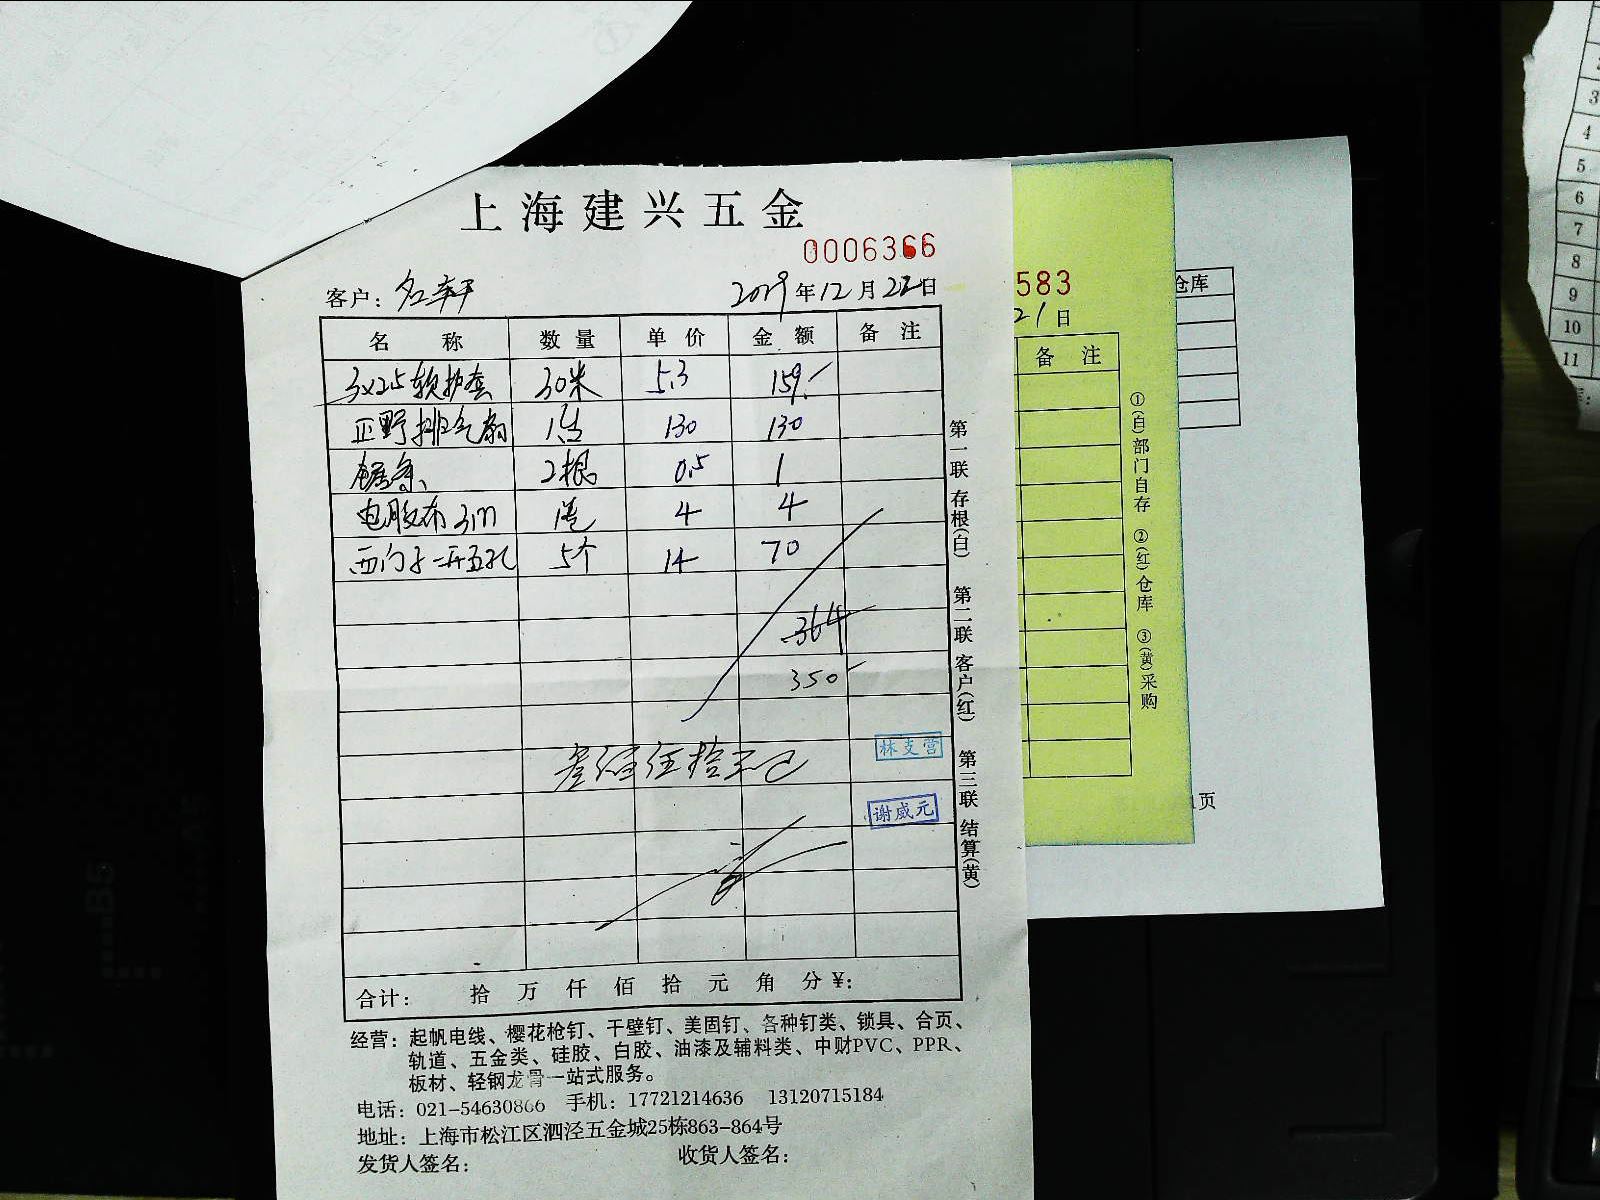 上海建兴五金
0006366
客户：名轩 2019年12月22日
名称 数量 单价 金额 备注
3x2.5软护套 30米 5.3 159.-
正野排气扇 1台 130 130
锯条 2根 0.5 1
电胶布 3m 1卷 4 4
西门子一开五孔 5个 14 70
364
350
叁佰伍拾元正
林支营
谢威元
合计： 拾 万 仟 佰 拾 元 角 分 ¥：
经营：起帆电线、樱花枪钉、干壁钉、美固钉、各种钉类、锁具、合页、
轨道、五金类、硅胶、白胶、油漆及辅料类、中财PVC、PPR、
板材、轻钢龙骨一站式服务。
电话：021-54630866 手机：17721214636 13120715184
地址：上海市松江区泗泾五金城25栋863-864号
发货人签名： 收货人签名：
第一联 存根(白) 第二联 客户(红) 第三联 结算(黄)
583
21日
备注
①(白)部门自存 ②(红)仓库 ③(黄)采购
仓库
1页
3
4
5
6
7
8
9
10
11